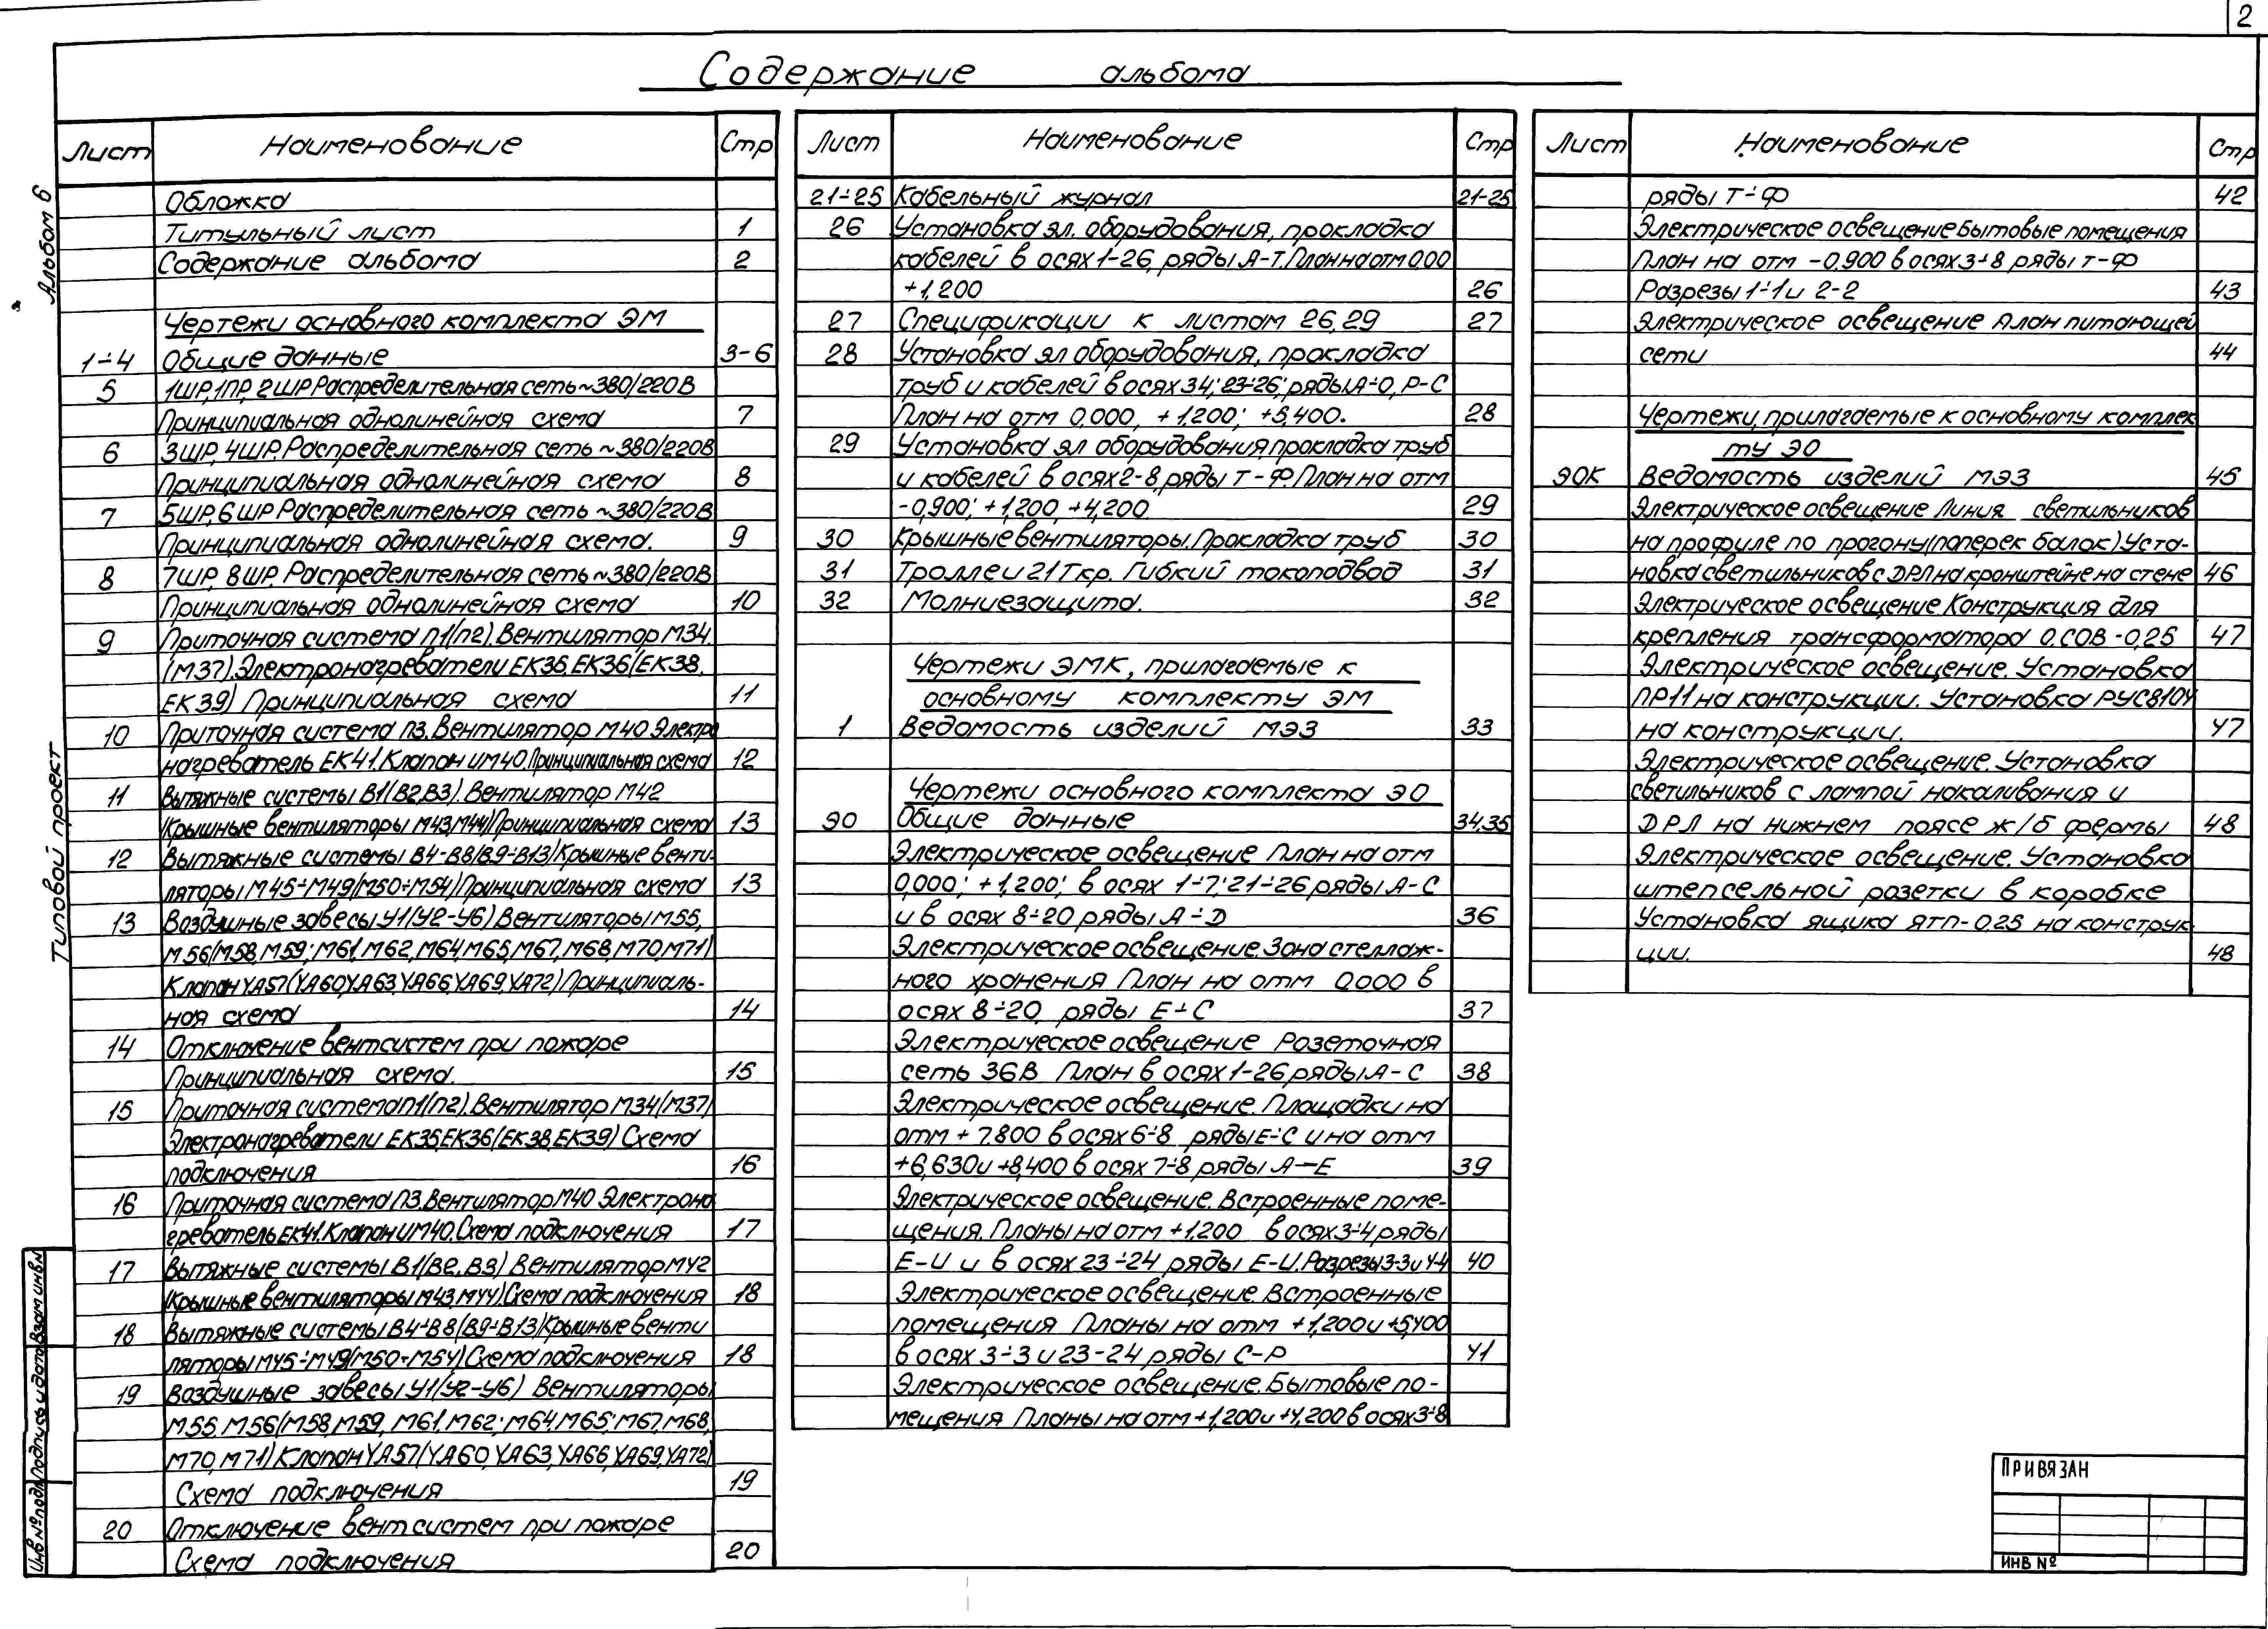 2
Содержание альбома
Альбом 6
Типовой проект
Лист Наименование Стр
Обложка
Титульный лист 1
Содержание альбома 2
Чертежи основного комплекта ЭМ
1÷4 Общие данные 3-6
5 1ШР, 1ПР, 2ШР Распределительная сеть ~380/220В
Принципиальная однолинейная схема 7
6 3ШР, 4ШР. Распределительная сеть ~380/220В
Принципиальная однолинейная схема 8
7 5ШР, 6ШР Распределительная сеть ~380/220В
Принципиальная однолинейная схема. 9
8 7ШР, 8ШР. Распределительная сеть ~380/220В
Принципиальная однолинейная схема 10
9 Приточная система П1(П2). Вентилятор М34.
(М37). Электронагреватели ЕК35, ЕК36(ЕК38,
ЕК39) Принципиальная схема 11
10 Приточная система П3. Вентилятор М40 Электро
нагреватель ЕК41. Клапан ИМ40. Принципиальная схема 12
11 Вытяжные системы В1(В2,В3). Вентилятор М42
(Крышные вентиляторы М43,М44) Принципиальная схема 13
12 Вытяжные системы В4-В8(В9-В13)(Крышные венти-
ляторы М45÷М49(М50÷М54) Принципиальная схема 13
13 Воздушные завесы У1(У2-У6) Вентиляторы М55,
М56(М58,М59; М61,М62,М64,М65,М67,М68,М70,М71)
Клапан YA57(YA60,YA63,YA66,YA69,YA72) Принципиаль-
ная схема 14
14 Отключение вентсистем при пожаре
Принципиальная схема. 15
15 Приточная система П1(П2). Вентилятор М34(М37)
Электронагреватели ЕК35,ЕК36(ЕК38,ЕК39) Схема
подключения 16
16 Приточная система П3. Вентилятор М40 Электрона
греватель ЕК41. Клапан ИМ40. Схема подключения 17
17 Вытяжные системы В1(В2, В3) Вентилятор М42
(Крышные вентиляторы М43,М44). Схема подключения 18
18 Вытяжные системы В4÷В8(В9÷В13)(Крышные венти
ляторы М45÷М49(М50÷М54) Схема подключения 18
19 Воздушные завесы У1(У2-У6) Вентиляторы
М55, М56(М58,М59, М61,М62; М64,М65; М67, М68,
М70,М71) Клапан YA57(YA60,YA63,YA66,YA69,YA72)
Схема подключения 19
20 Отключение вентсистем при пожаре
Схема подключения 20
Лист Наименование Стр
21÷25 Кабельный журнал 21-25
26 Установка эл. оборудования, прокладка
кабелей в осях 1-26, ряды А-Т. План на отм 0.00
+1,200 26
27 Спецификации к листам 26,29 27
28 Установка эл оборудования, прокладка
труб и кабелей в осях 3 4; 23÷26; ряды А÷О, Р-С
План на отм 0,000, +1,200; +5,400. 28
29 Установка эл оборудования, прокладка труб
и кабелей в осях 2-8, ряды Т-Ф. План на отм
-0,900; +1,200, +4,200 29
30 Крышные вентиляторы. Прокладка труб 30
31 Троллеи 21Ткр. Гибкий токоподвод 31
32 Молниезащита. 32
Чертежи ЭМК, прилагаемые к
основному комплекту ЭМ
1 Ведомость изделий МЭЗ 33
Чертежи основного комплекта ЭО
ЭО Общие данные 34,35
Электрическое освещение План на отм
0,000; +1,200; в осях 1÷7; 21÷26 ряды А-С
и в осях 8÷20 ряды А÷Д 36
Электрическое освещение. Зона стеллаж-
ного хранения План на отм 0,000 в
осях 8÷20 ряды Е÷С 37
Электрическое освещение Розеточная
сеть 36В План в осях 1-26 ряды А-С 38
Электрическое освещение. Площадки на
отм +7.800 в осях 6÷8 ряды Е÷С и на отм
+6,630 и +8,400 в осях 7÷8 ряды А-Е 39
Электрическое освещение. Встроенные поме-
щения. Планы на отм +1,200 в осях 3÷4 ряды
Е-И и в осях 23÷24 ряды Е-И. Разрезы 3-3 и 4-4 40
Электрическое освещение. Встроенные
помещения Планы на отм +1,200 и +5,400
в осях 3÷3 и 23-24 ряды С-Р 41
Электрическое освещение. Бытовые по-
мещения Планы на отм +1,200 и +4,200 в осях 3÷8
Лист Наименование Стр
ряды Т÷Ф 42
Электрическое освещение Бытовые помещения
План на отм -0.900 в осях 3÷8 ряды Т-Ф
Разрезы 1÷1 и 2-2 43
Электрическое освещение План питающей
сети 44
Чертежи, прилагаемые к основному комплек
ту ЭО
ЭОК Ведомость изделий МЭЗ 45
Электрическое освещение Линия светильников
на профиле по прогону (поперек балок) Уста-
новка светильников с ДРЛ на кронштейне на стене 46
Электрическое освещение. Конструкция для
крепления трансформатора ОСОВ-0,25 47
Электрическое освещение. Установка
ПР11 на конструкции. Установка РУС8104
на конструкции. 47
Электрическое освещение. Установка
светильников с лампой накаливания и
ДРЛ на нижнем поясе ж/б фермы 48
Электрическое освещение. Установка
штепсельной розетки в коробке
Установка ящика ЯТП-0.25 на конструк
ции. 48
Инв № подл
Подпись и дата
Взам инв. №
ПРИВЯЗАН
ИНВ №